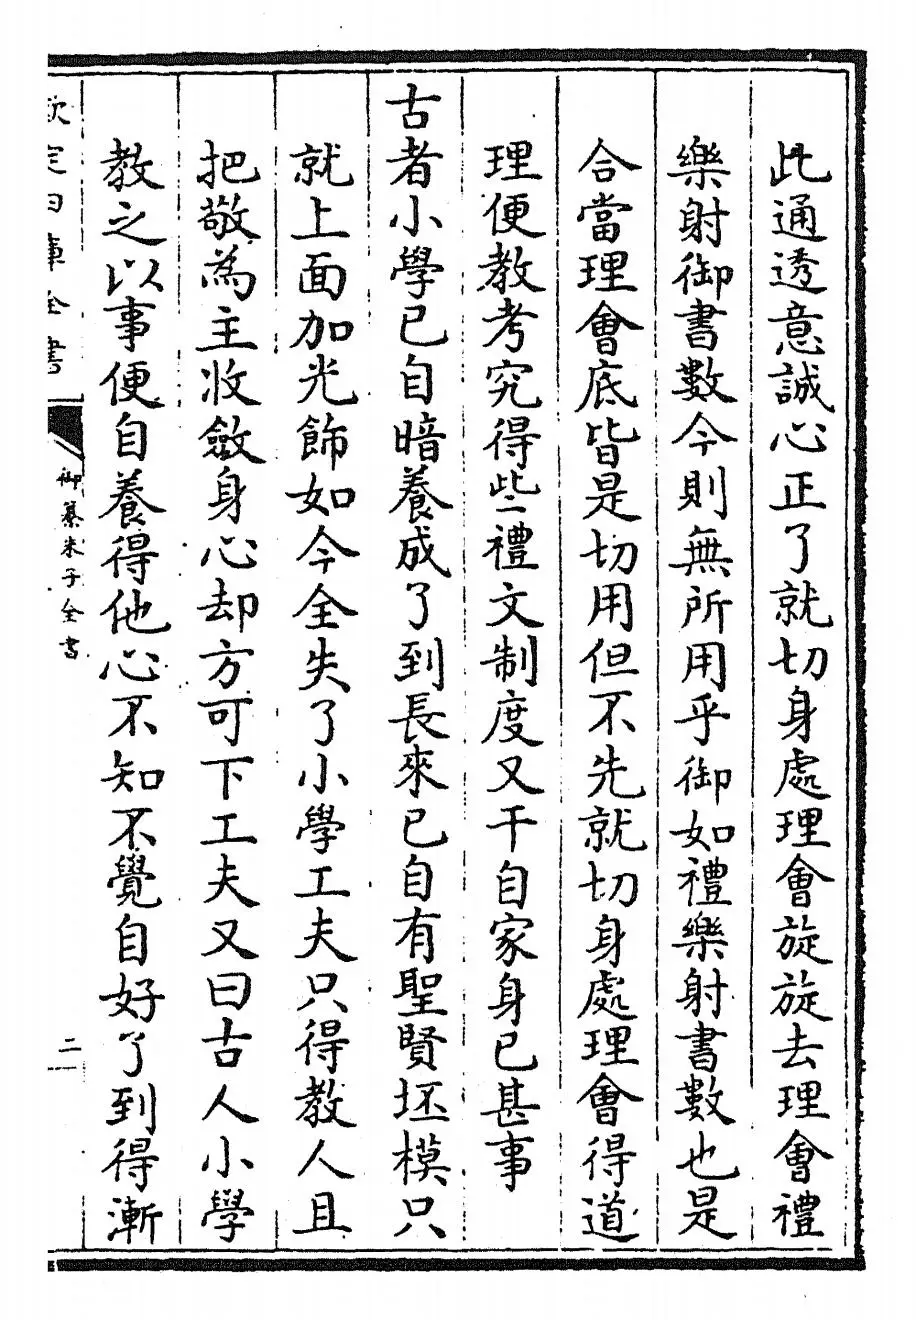 此通透意誠心正了就切身處理會旋旋去理會禮
樂射御書數今則無所用乎御如禮樂射書數也是
合當理會底皆是切用但不先就切身處理會得道
理便教考究得些禮文制度又干自家身己甚事
古者小學已自暗養成了到長來已自有聖賢坯模只
就上面加光飾如今全失了小學工夫只得教人且
把敬為主收斂身心却方可下工夫又曰古人小學
教之以事便自養得他心不知不覺自好了到得漸
欽定四庫全書
御纂朱子全書
二